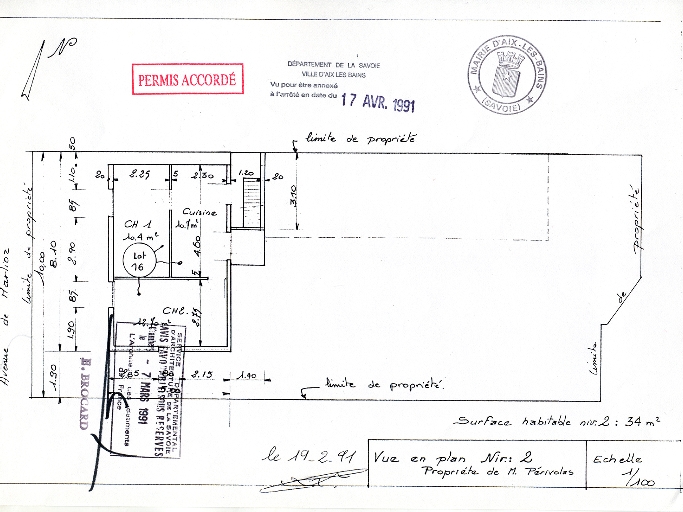 N
PERMIS ACCORDÉ
DÉPARTEMENT DE LA SAVOIE
VILLE D'AIX LES BAINS
Vu pour être annexé
à l'arrêté en date du 17 AVR. 1991
MAIRIE D'AIX-LES-BAINS
(SAVOIE)
limite de propriété
20 2.25 5 2.50 1.20 20
50
1.10
85
2.90
85
1.90
10.00
8.10
1.90
3.10
Cuisine
10.1 m²
CH 1
10.4 m²
Lot
16
4.60
5
CH2.
2.75
2.15 1.40
Avenue de Marlioz
limite de propriété
limite de propriété
limite de propriété.
H. BROCARD
SERVICE DÉPARTEMENTAL
D'ARCHITECTURE DE LA SAVOIE
AVIS FAVORABLE SOUS RESERVES
le - 7 MARS 1991
France
Surface habitable niv. 2 : 34 m²
le 19_2_91
Vue en plan Niv: 2
Propriété de M. Périvolas
Echelle
1/100